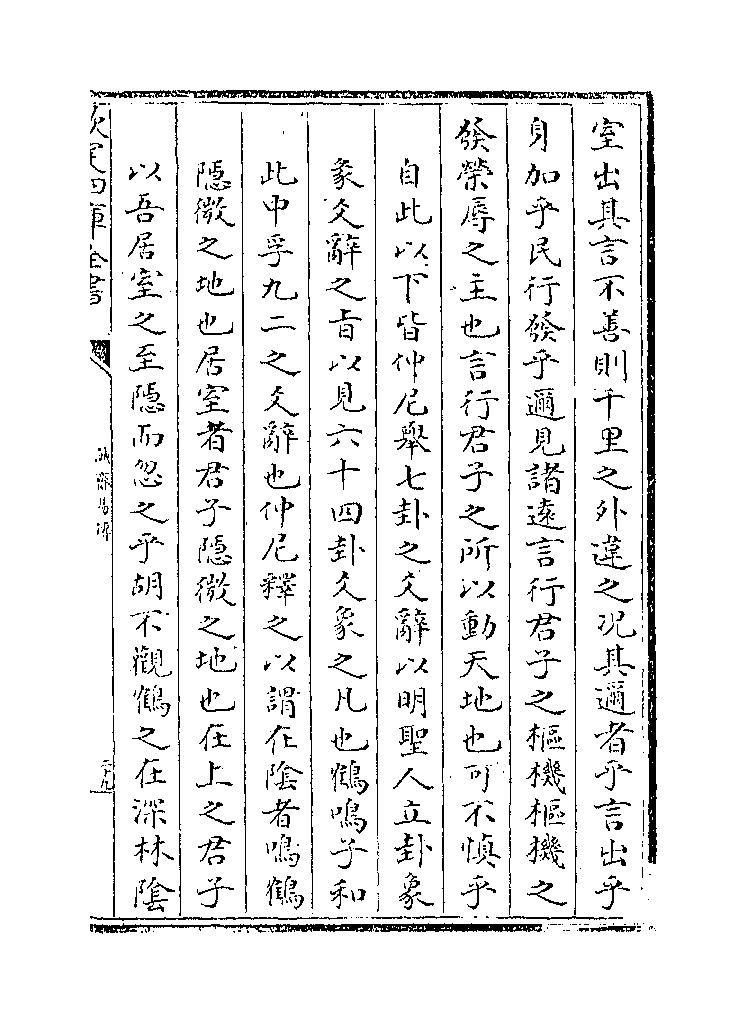 室出其言不善則千里之外違之况其邇者乎言出乎
身加乎民行發乎邇見諸逺言行君子之樞機樞機之
發榮辱之主也言行君子之所以動天地也可不慎乎
自此以下皆仲尼舉七卦之爻辭以明聖人立卦象
象爻辭之旨以見六十四卦爻象之凡也鶴鳴子和
此中孚九二之爻辭也仲尼釋之以謂在隂者鳴鶴
隱微之地也居室者君子隱微之地也在上之君子
以吾居室之至隱而忽之乎胡不觀鶴之在深林隂
欽定四庫全書
誠齋易傳
二十九